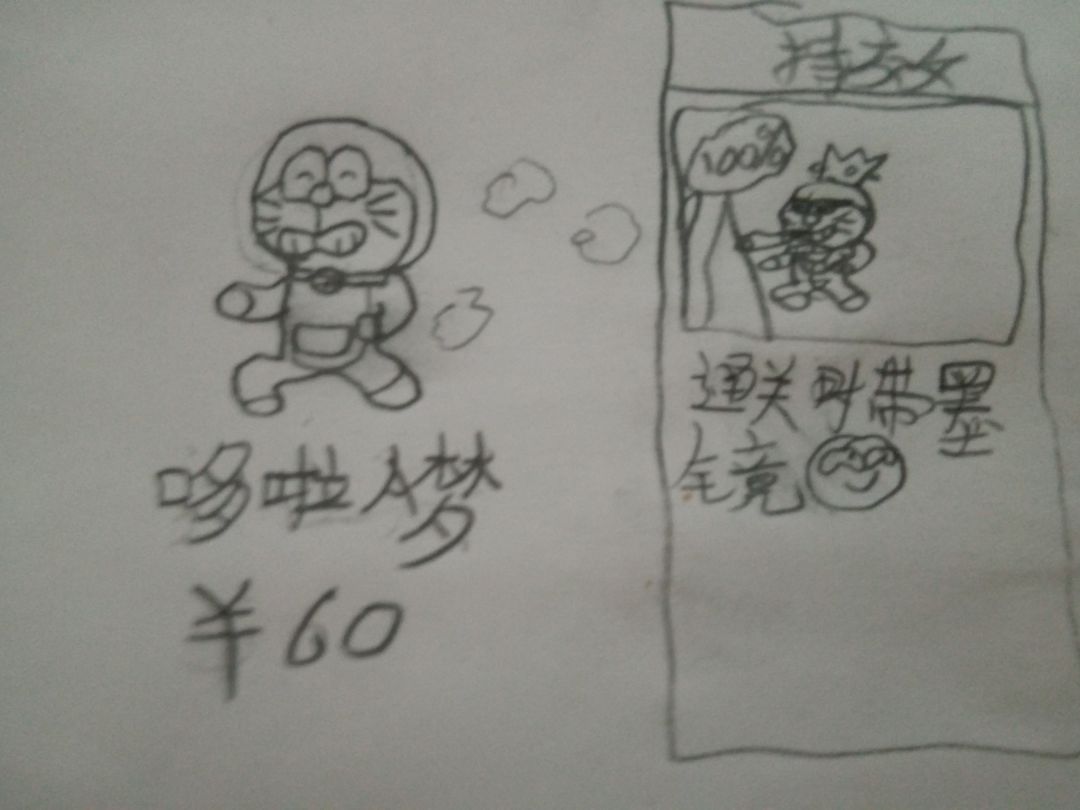 哆啦A梦
￥60
特效
100%
通关时带墨
镜